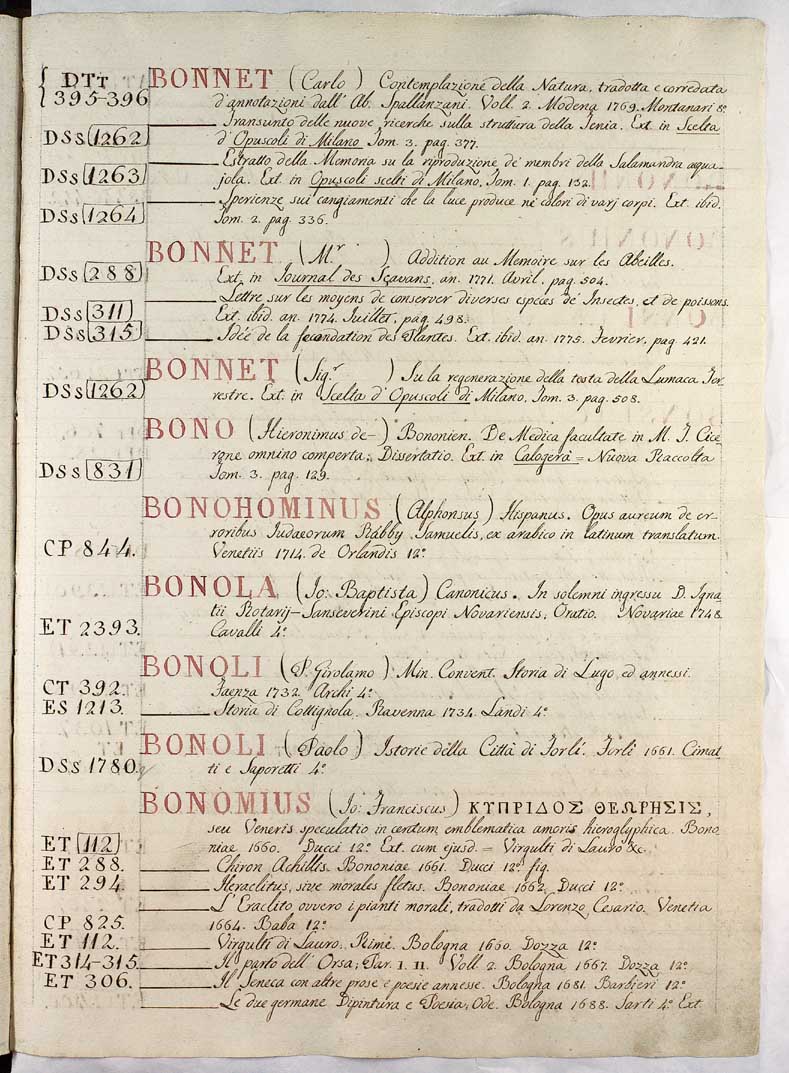 DTt BONNET (Carlo) Contemplazione della Natura, tradotta e corredata
395-396 d'annotazioni dall' Ab. Spallanzani. Voll. 2. Modena 1769. Montanari 8º
Transunto delle nuove ricerche sulla struttura della Tenia. Ext. in Scelta
DSs 1262 d' Opuscoli di Milano Tom. 3. pag. 377.
Estratto della Memoria su la riproduzione de' membri della Salamandra acqua-
DSs 1263 jola. Ext. in Opuscoli scelti di Milano, Tom. 1. pag. 132.
Sperienze sui cangiamenti che la luce produce ne' colori di varj corpi. Ext. ibid.
DSs 1264 Tom. 2. pag. 336.
BONNET (Mr ) Addition au Memoire sur les Abeilles.
DSs 288 Ext. in Journal des Sçavans, an. 1771. Avril, pag. 504.
Lettre sur les moyens de conserver diverses especes de' Insectes, et de poissons.
DSs 311 Ext. ibid. an. 1774. Juillet, pag. 498.
DSs 315 Idée de la fecondation des Plantes. Ext. ibid. an. 1775. Fevrier, pag. 421.
BONNET (Sig.r ) Su la regenerazione della testa della Lumaca Ter-
DSs 1262 restre. Ext. in Scelta d' Opuscoli di Milano, Tom. 3. pag. 508.
BONO (Hieronimus de-) Bononien. De Medica facultate in M. T. Cice-
rone omnino comperta; Dissertatio. Ext. in Calogerà = Nuova Raccolta
DSs 831 Tom. 3. pag. 129.
BONOHOMINUS (Alphonsus) Hispanus. Opus aureum de er-
roribus Iudaeorum Rabby Samuelis, ex arabico in latinum translatum.
CP 844. Venetiis 1714. de Orlandis 12º
BONOLA (Io: Baptista) Canonicus. In solemni ingressu D. Igna-
tii Rotarij-Sanseverini Episcopi Novariensis, Oratio. Novariae 1748.
ET 2393. Cavalli 4º
BONOLI (P. Girolamo) Min. Convent. Storia di Lugo, ed annessi.
CT 392. Faenza 1732. Archi 4º
ES 1213. Storia di Cottignola. Ravenna 1734. Landi 4º
BONOLI (Paolo) Istorie della Città di Forlì. Forlì 1661. Cimat-
DSs 1780. ti e Saporetti 4º
BONOMIUS (Io: Franciscus) ΚΥΠΡΙΔΟΣ ΘΕΩΡΗΣΙΣ,
seu Veneris speculatio in centum emblematica amoris hieroglyphica. Bono-
ET 112 niae 1660. Ducci 12º Ext. cum ejusd. = Virgulti di Lauro &c.
ET 288. Chiron Achillis. Bononiae 1661. Ducci 12º fig.
ET 294. Heraclitus, sive morales fletus. Bononiae 1662. Ducci 12º
L' Eraclito ovvero i pianti morali, tradotti da Lorenzo Cesario. Venetia
CP 825. 1664. Baba 12º
ET 112. Virgulti di Lauro: Rime. Bologna 1660. Dozza 12º
ET 314-315. Il parto dell' Orsa; Par. I. II. Voll. 2. Bologna 1667. Dozza 12º
ET 306. Il Seneca con altre prose e poesie annesse. Bologna 1681. Barbieri 12º
Le due germane Dipintura e Poesia, Ode. Bologna 1688. Sarti 4º Ext.